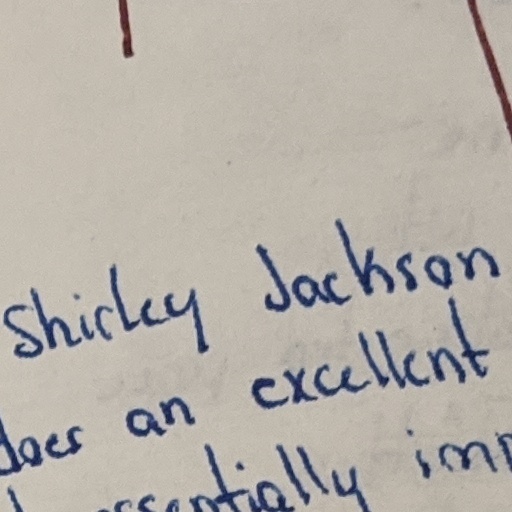 Shirley Jackson
does an excellent
essentially